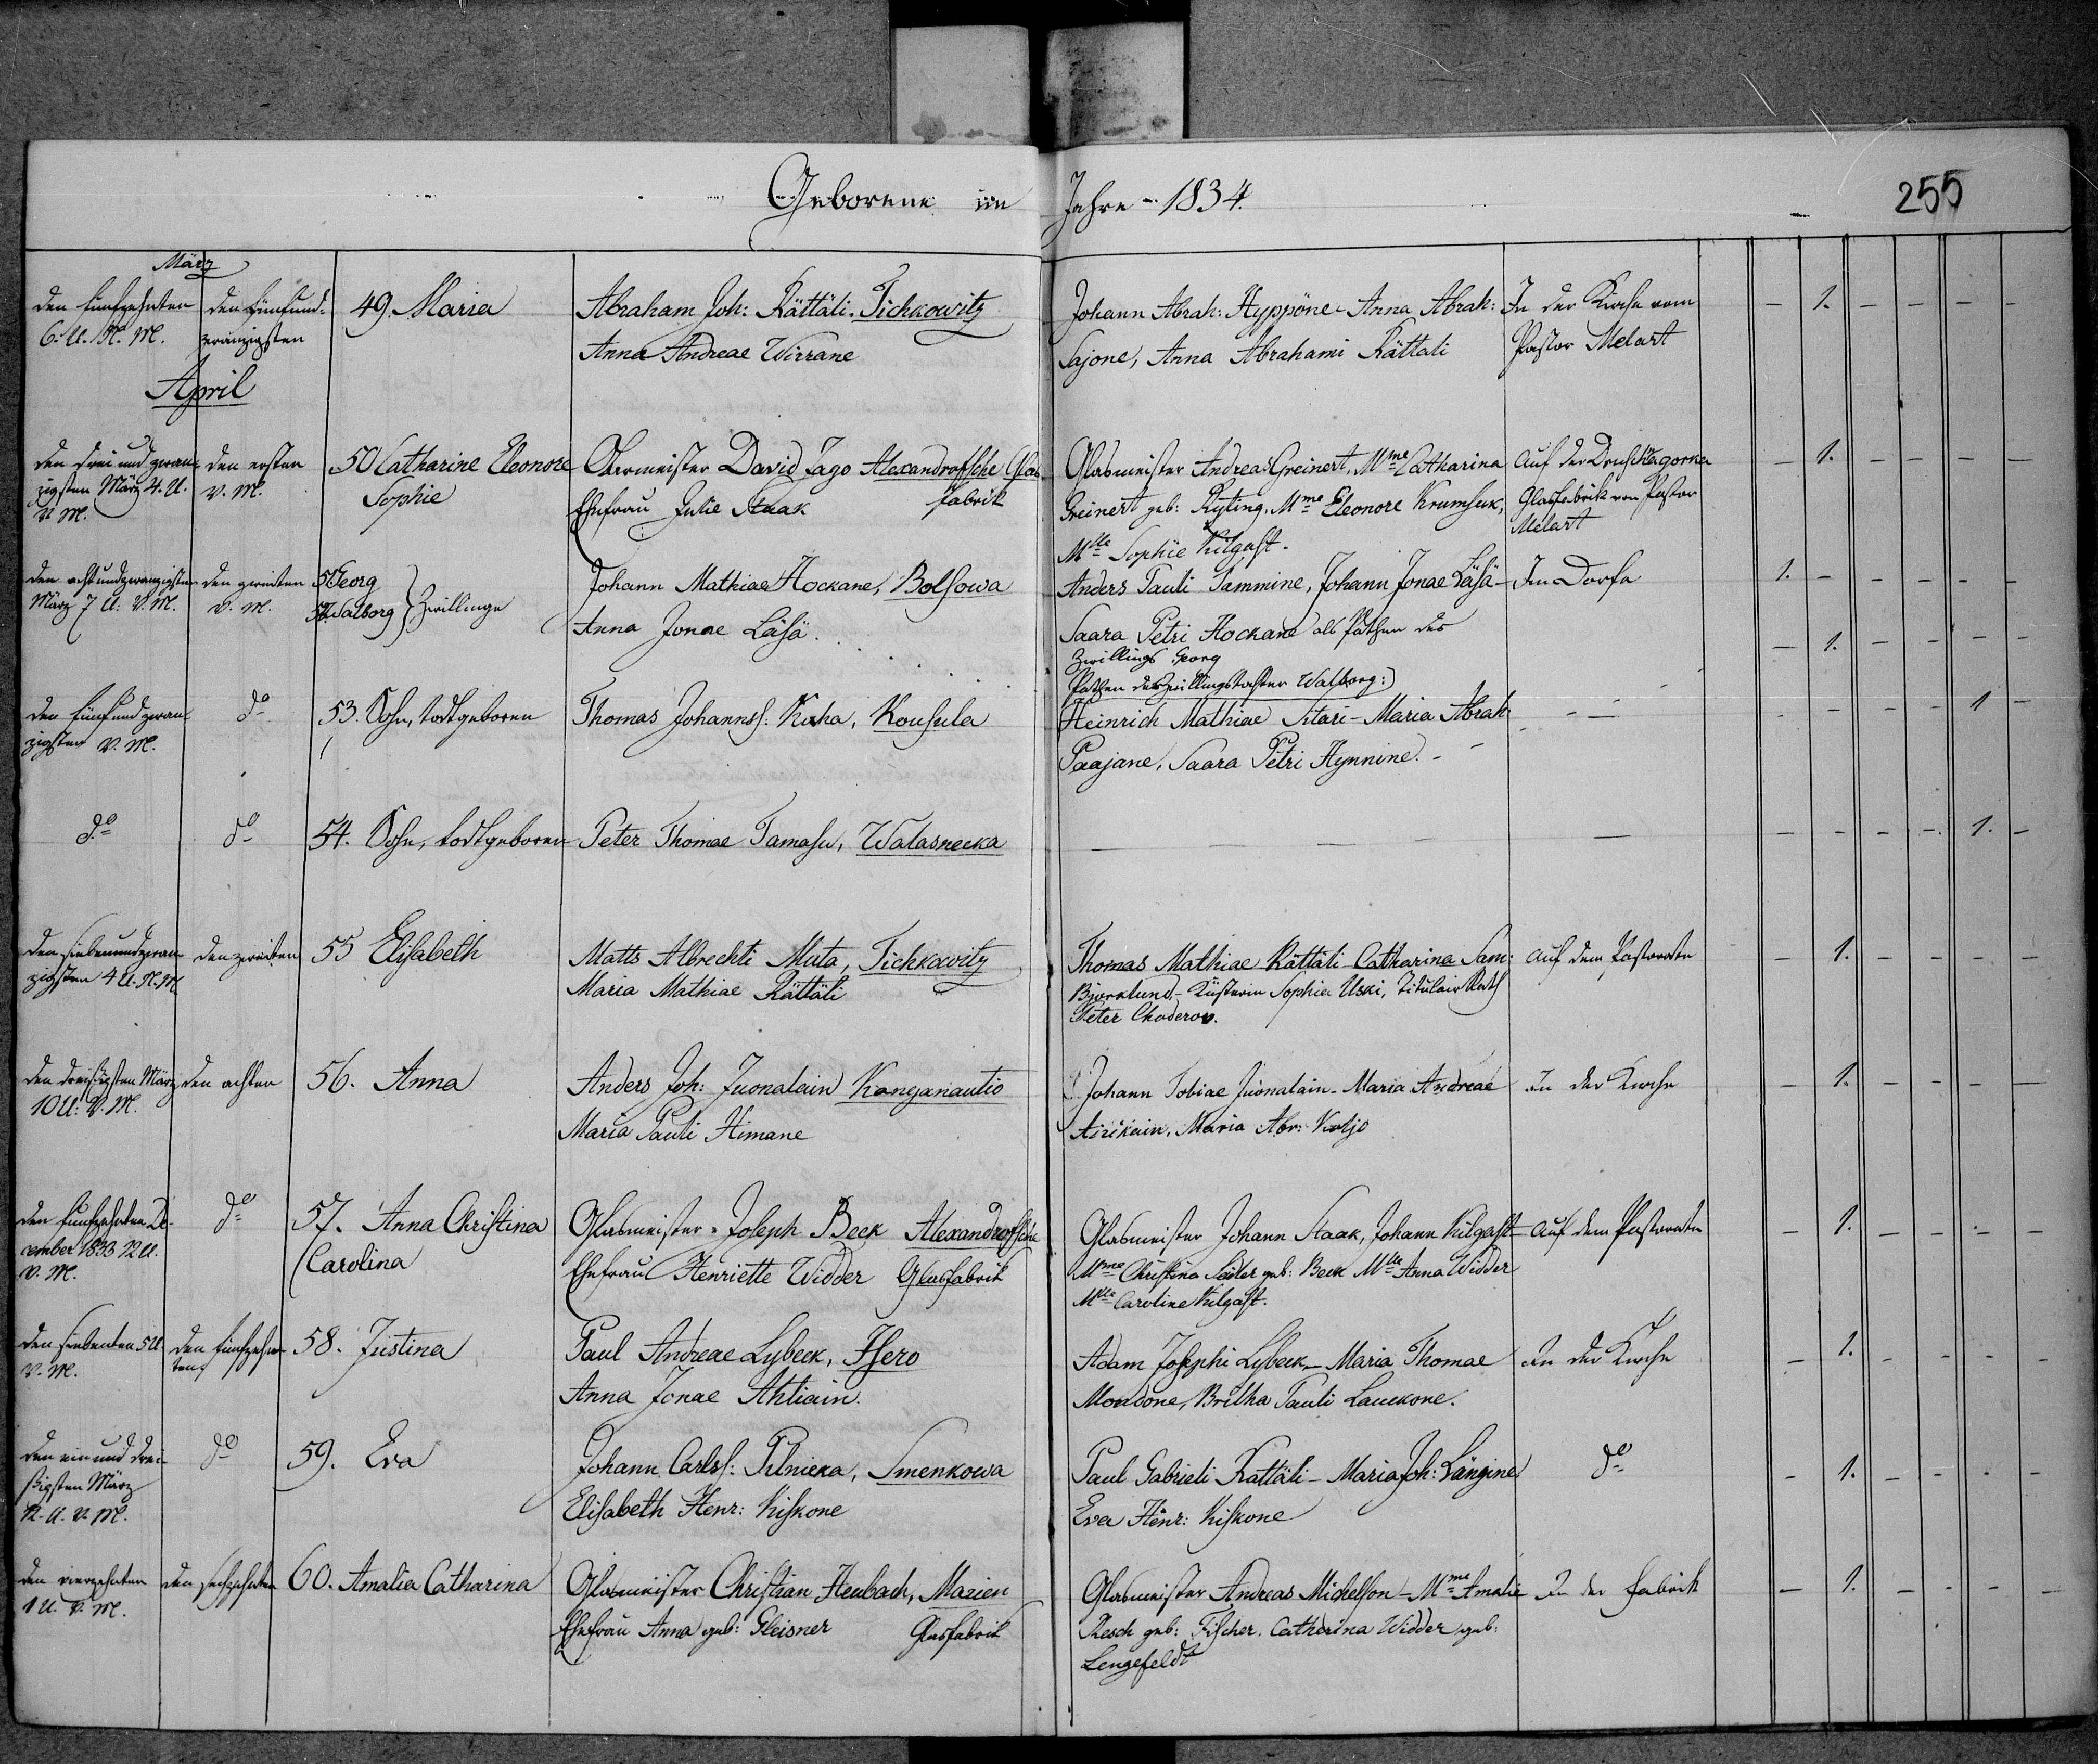 Geborene im Jahre 1834.
255
März
den funfzehnten
6. U. N. M.
den fünfund-
zwanzigsten
49. Maria
Abraham Joh: Rättäli. Tichkowitz
Anna Andreae Wirrane
Johann Abrah: Hyppöne - Anna Abrah:
Sajone, Anna Abrahami Rättäli
In der Kirche vom
Pastor Melart
– 1. – – – –
April
den drei und zwan-
zigsten März 4. U.
V. M.
den ersten
V. M.
50 Catharine Eleonore
Sophie
David Jago Alexandroffsche Glas-
fabrik
Ehefrau Julie Staak
Glasmeister Andreas Greinert, Mme Catharina
Greinert geb: Kyting, Mme Eleonore Krumhuk,
Mlle Sophie Kilgast.
auf der
Glasfabrik vom Pastor
Melart
– 1. – – – –
den achtundzwanzigsten
März 7 U: V. M.
den zweiten
V. M.
51 Georg
52. Walborg } Zwillinge
Johann Mathiae Hockane, Bolsowa
Anna Jonae Läsä.
Anders Pauli Tammine, Johann Jonae Läsä -
Saara Petri Hockane als Pathen des
Zwillings Georg
Pathen der Zwillingstochter Walborg:
Heinrich Mathiae Sitari - Maria Abrah:
Paajane, Saara Petri Hynnine. -
Im Dorfe
1. – – – – –
– 1. – – – –
den fünfund zwan-
zigsten V. M.
do
53. Sohn, todtgeboren
Thomas Johannss: Kaha, Kousula
– – – – 1 –
do
do
54. Sohn, todtgeboren
Peter Thomae Tamasu, Walasnecka
– – – – 1. –
den siebenundzwan-
zigsten 4 U. N. M.
den zweiten
55 Elisabeth
Matts Albrechti Muta, Tichkowitz
Maria Mathiae Rättäli
Thomas Mathiae Rättäli Catharina Sam:
Bjorklund - Küsterin Sophia Uski, Titulair Rath
Peter Choderow.
auf dem Pastorate
– 1. – – – –
den dreisigsten März
10 U: V. M.
den achten
56. Anna
Anders Joh: Juonalain Kanganautio
Maria Pauli Himane
Johann Tobiae Juonalain - Maria Andreae
Airikain, Maria Abr: Kotjo
In der Kirche
– 1. – – – –
den funfzehnten De-
cember 1833 12 U.
V. M.
do
57. Anna Christina
Carolina
Glasmeister Joseph Beck Alexandroffsche
Ehefrau Henriette Widder Glasfabrik
Glasmeister Johann Staak, Johann Kilgast
Mme Christina Seiler geb: Beck Mlle Anna Widder
Mlle Caroline Kilgast.
auf dem Pastorate
– 1. – – – –
den siebenten 5 U.
V. M.
den fünfzehn-
ten
58. Justina
Paul Andreae Lybeck, Hero
Anna Jonae Ahtiain.
Adam Josephi Lybeck - Maria Thomae
Mondone, Britha Pauli Lauckone.
In der Kirche
– 1. – – – –
den ein und drei-
ßigsten März
12. U. V. M.
do
59. Eva
Johann Carlss: Pilnicka, Smenkowa
Elisabeth Henr: Kiskone
Paul Gabrieli Rättäli - Maria Joh: Längine
Eva Henr: Kiskone
do
– 1. – – – –
den vierzehnten
1 U. V. M.
den sechzehnten
60. Amalia Catharina
Glasmeister Christian Heubach, Marien
Ehefrau Anna geb: Gleisner Glasfabrik
Glasmeister Andreas Michelson - Mme Amalie
Resch geb: Fischer, Catharina Widder geb:
Lengefeldt
In der Fabrik
– 1. – – – –